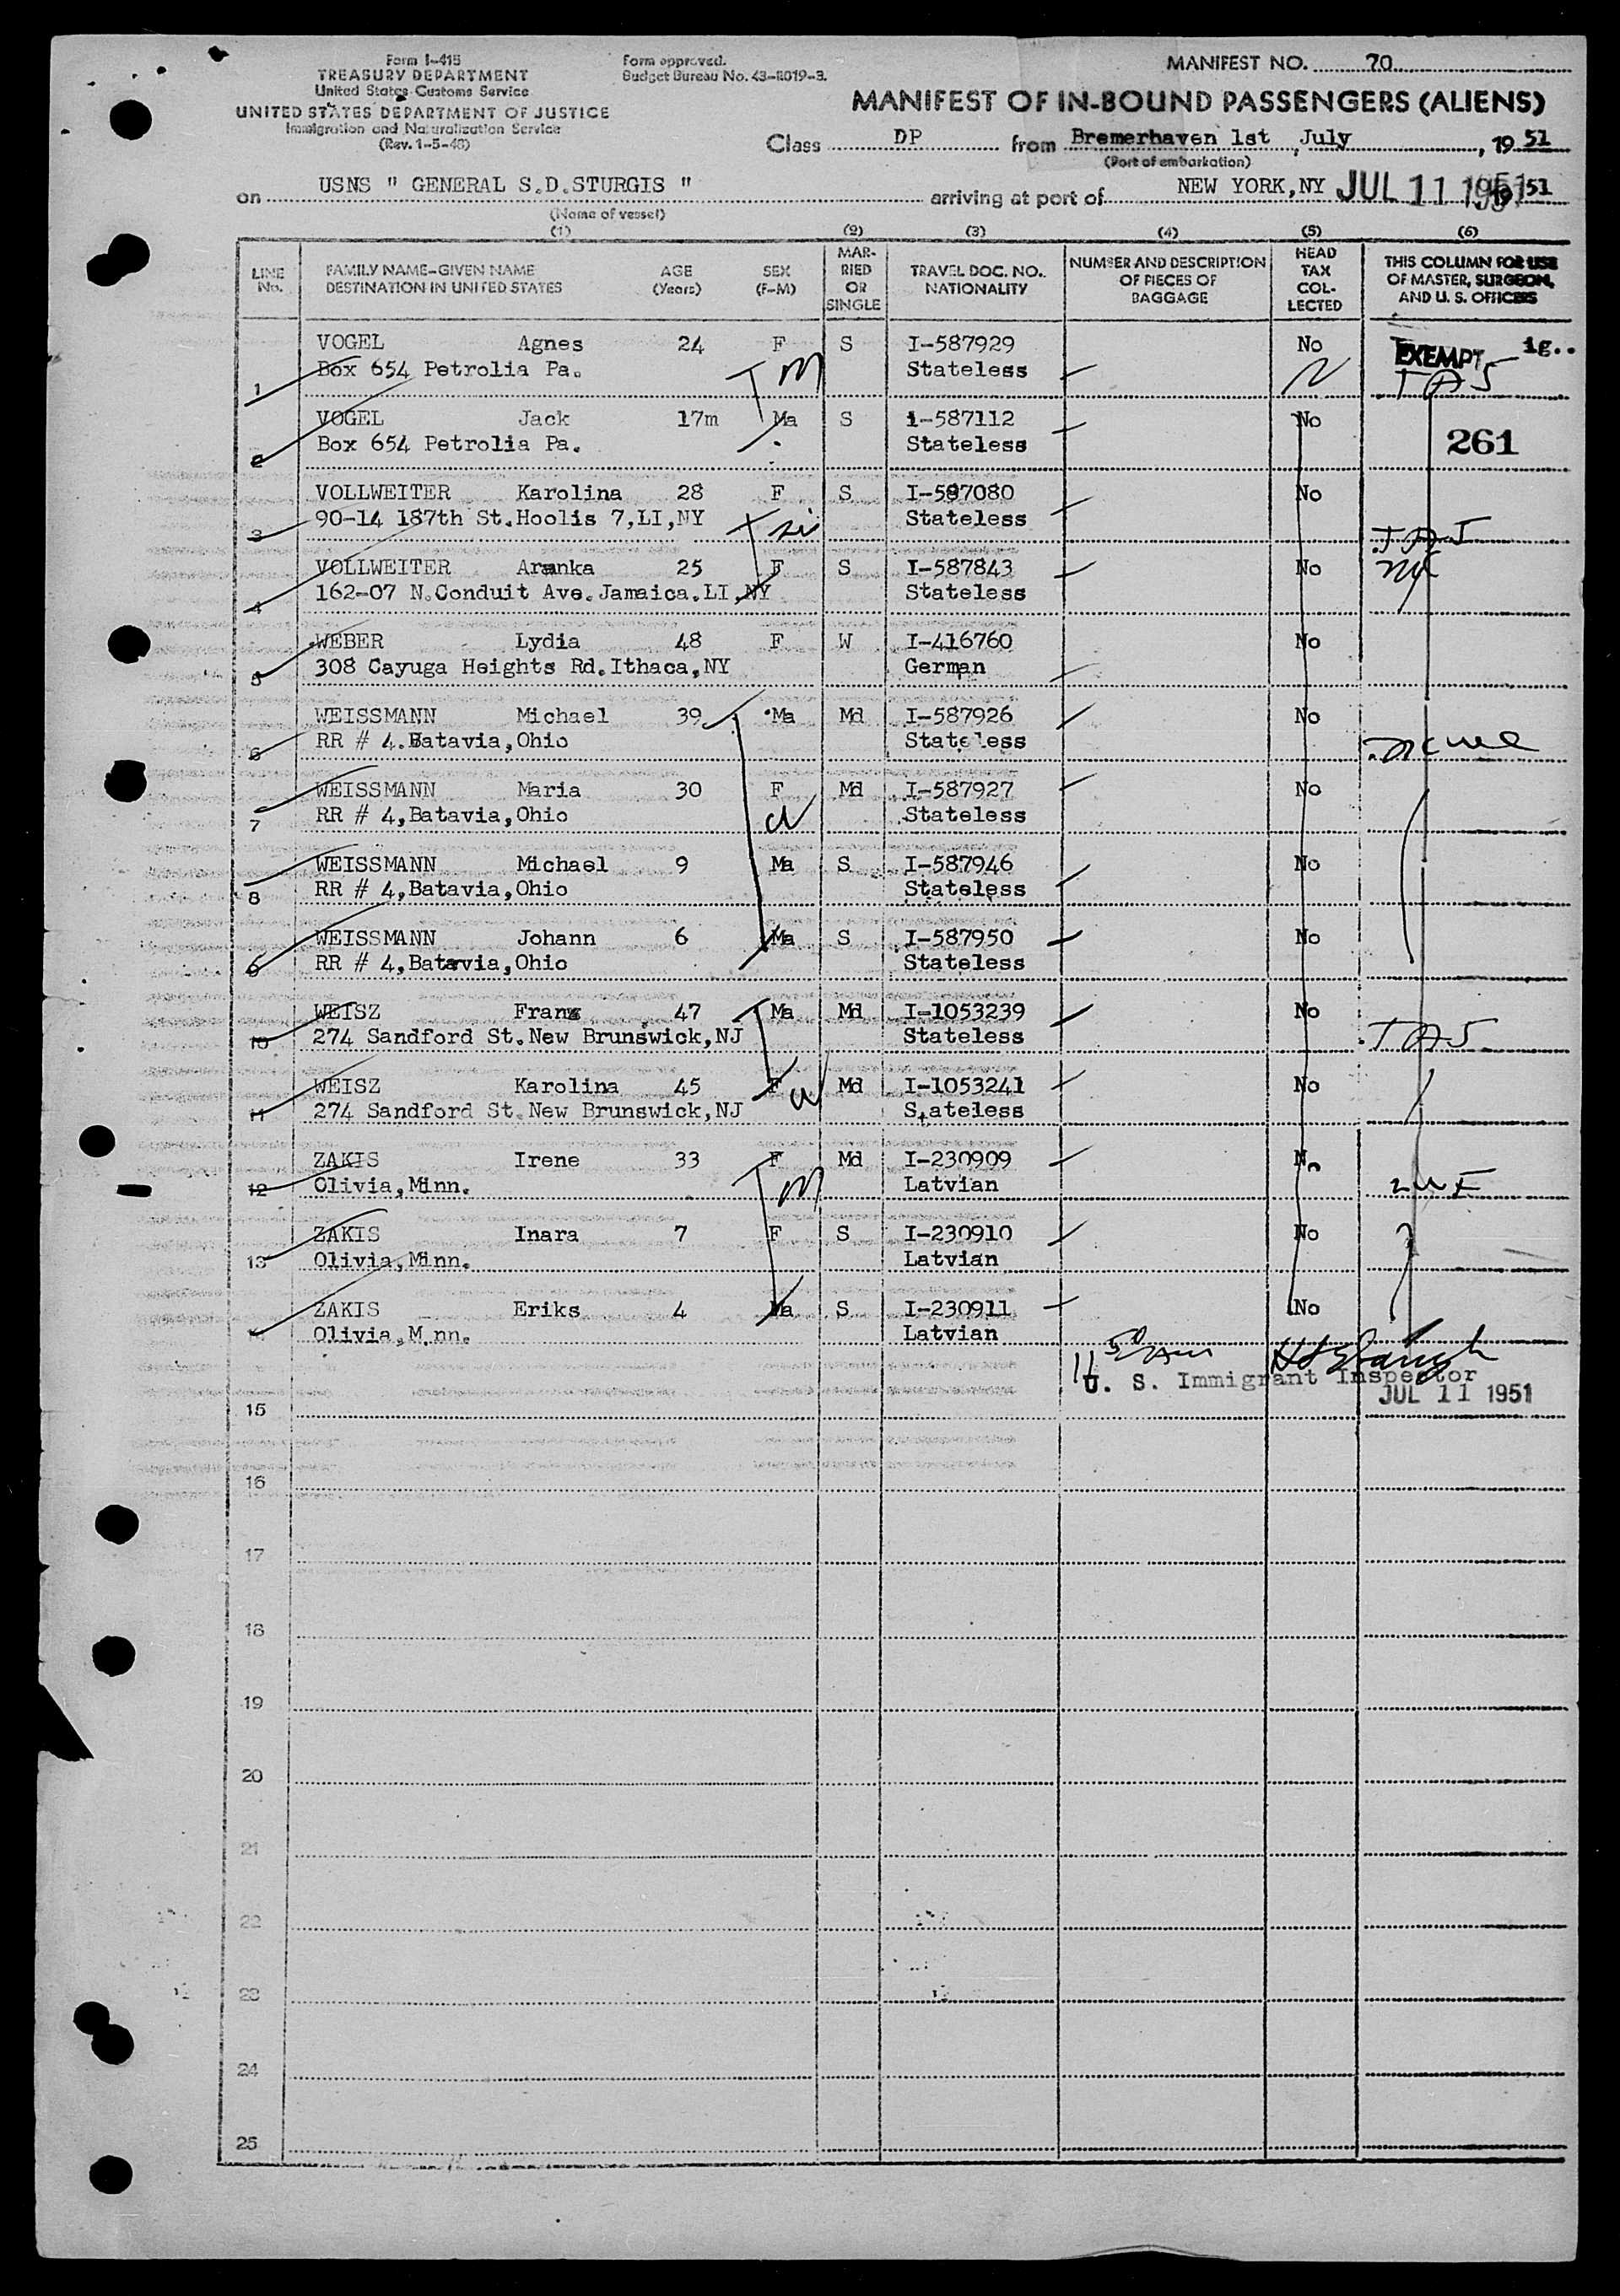 Form I-415
TREASURY DEPARTMENT
United States Customs Service
UNITED STATES DEPARTMENT OF JUSTICE
Immigration and Naturalization Service
(Rev. 1-5-48)
Form approved.
Budget Bureau No. 43-R019-3.
MANIFEST NO. 70
MANIFEST OF IN-BOUND PASSENGERS (ALIENS)
Class DP from Bremerhaven 1st , July , 19 51
(Port of embarkation)
on USNS " GENERAL S.D.STURGIS " arriving at port of NEW YORK,NY JUL 11 1951 19 51
(Name of vessel)
(1) (2) (3) (4) (5) (6)
LINE No. FAMILY NAME–GIVEN NAME DESTINATION IN UNITED STATES AGE (Years) SEX (F–M) MARRIED OR SINGLE TRAVEL DOC. NO. NATIONALITY NUMBER AND DESCRIPTION OF PIECES OF BAGGAGE HEAD TAX COLLECTED THIS COLUMN FOR USE OF MASTER, SURGEON, AND U. S. OFFICERS
VOGEL Agnes 24 F S I-587929 No EXEMPT ig..
1 Box 654 Petrolia Pa. M Stateless TAS
VOGEL Jack 17m Ma S i-587112 No
2 Box 654 Petrolia Pa. Stateless 261
VOLLWEITER Karolina 28 F S I-597080 No
3 90-14 187th St.Hoolis 7,LI,NY Stateless TAS
VOLLWEITER Aranka 25 F S I-587843 No
4 162-07 N.Conduit Ave.Jamaica.LI,NY Stateless
WEBER Lydia 48 F W I-416760 No
5 308 Cayuga Heights Rd.Ithaca,NY German
WEISSMANN Michael 39 Ma Md I-587926 No
6 RR # 4.Batavia,Ohio Stateless
WEISSMANN Maria 30 F Md I-587927 No
7 RR # 4,Batavia,Ohio Stateless
WEISSMANN Michael 9 Ma S I-587946 No
8 RR # 4,Batavia,Ohio Stateless
WEISSMANN Johann 6 Ma S I-587950 No
9 RR # 4,Batavia,Ohio Stateless
WEISZ Franz 47 Ma Md I-1053239 No
10 274 Sandford St.New Brunswick,NJ Stateless TAS
WEISZ Karolina 45 F Md I-1053241 No
11 274 Sandford St.New Brunswick,NJ Stateless
ZAKIS Irene 33 F Md I-230909 No
12 Olivia,Minn. M Latvian
ZAKIS Inara 7 F S I-230910 No
13 Olivia,Minn. Latvian
ZAKIS Eriks 4 Ma S I-230911 No
Olivia,M nn. Latvian
U. S. Immigrant Inspector
JUL 11 1951
15
16
17
18
19
20
21
22
23
24
25